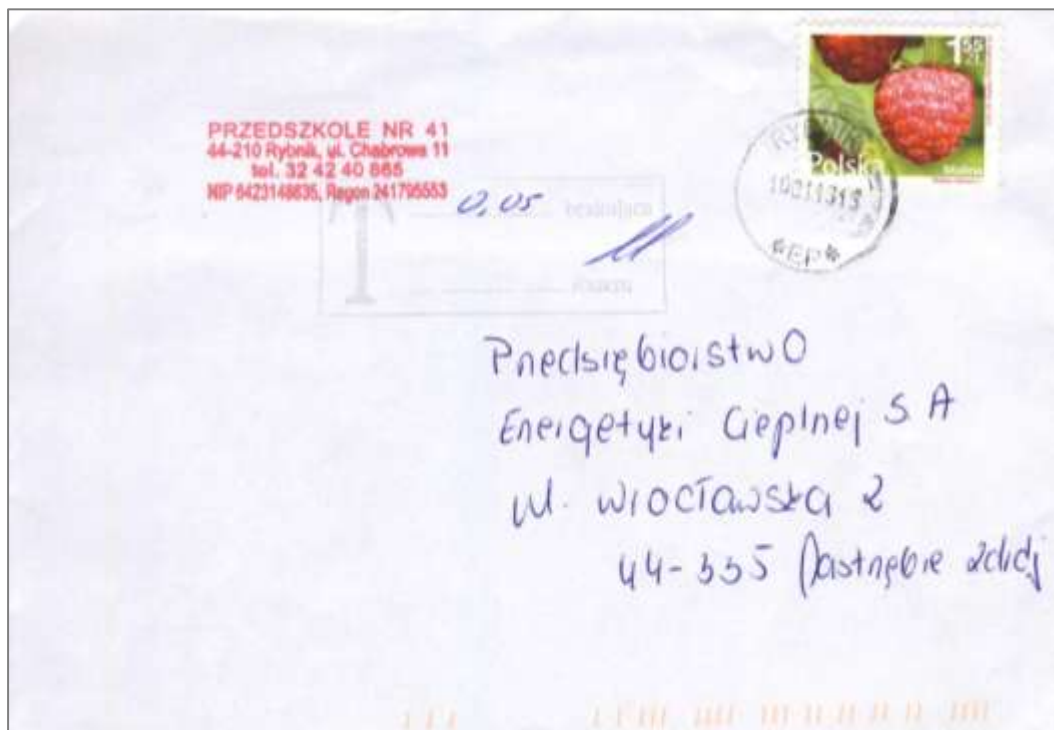 PRZEDSZKOLE NR 41
44-210 Rybnik, ul. Chabrowa 11
tel. 32 42 40 865
NIP 6423148635, Regon 241795553
1 55 ZŁ
Polska
RYBNIK
*EP*
0,05
Przedsiębiorstwo
Energetyki Cieplnej S A
ul. Wrocławska 2
44-335 Jastrzębie Zdrój